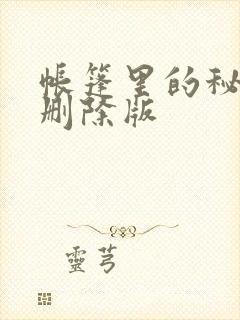 帐篷里的秘
删除版
靈芎